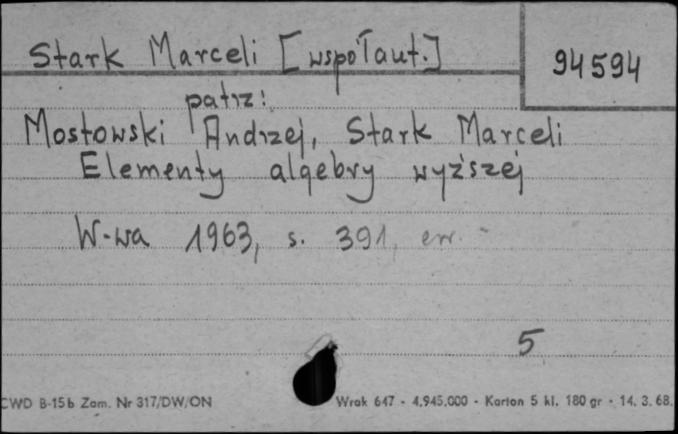 Stark Marceli [współaut.]
94594
patrz:
Mostowski Andrzej, Stark Marceli
Elementy algebry wyższej
W-wa 1963, s. 391,
5
CWD B-15b Zam. Nr 317/DW/ON Wrak 647 - 4.945.000 - Karton 5 kl. 180 gr - 14. 3. 68.